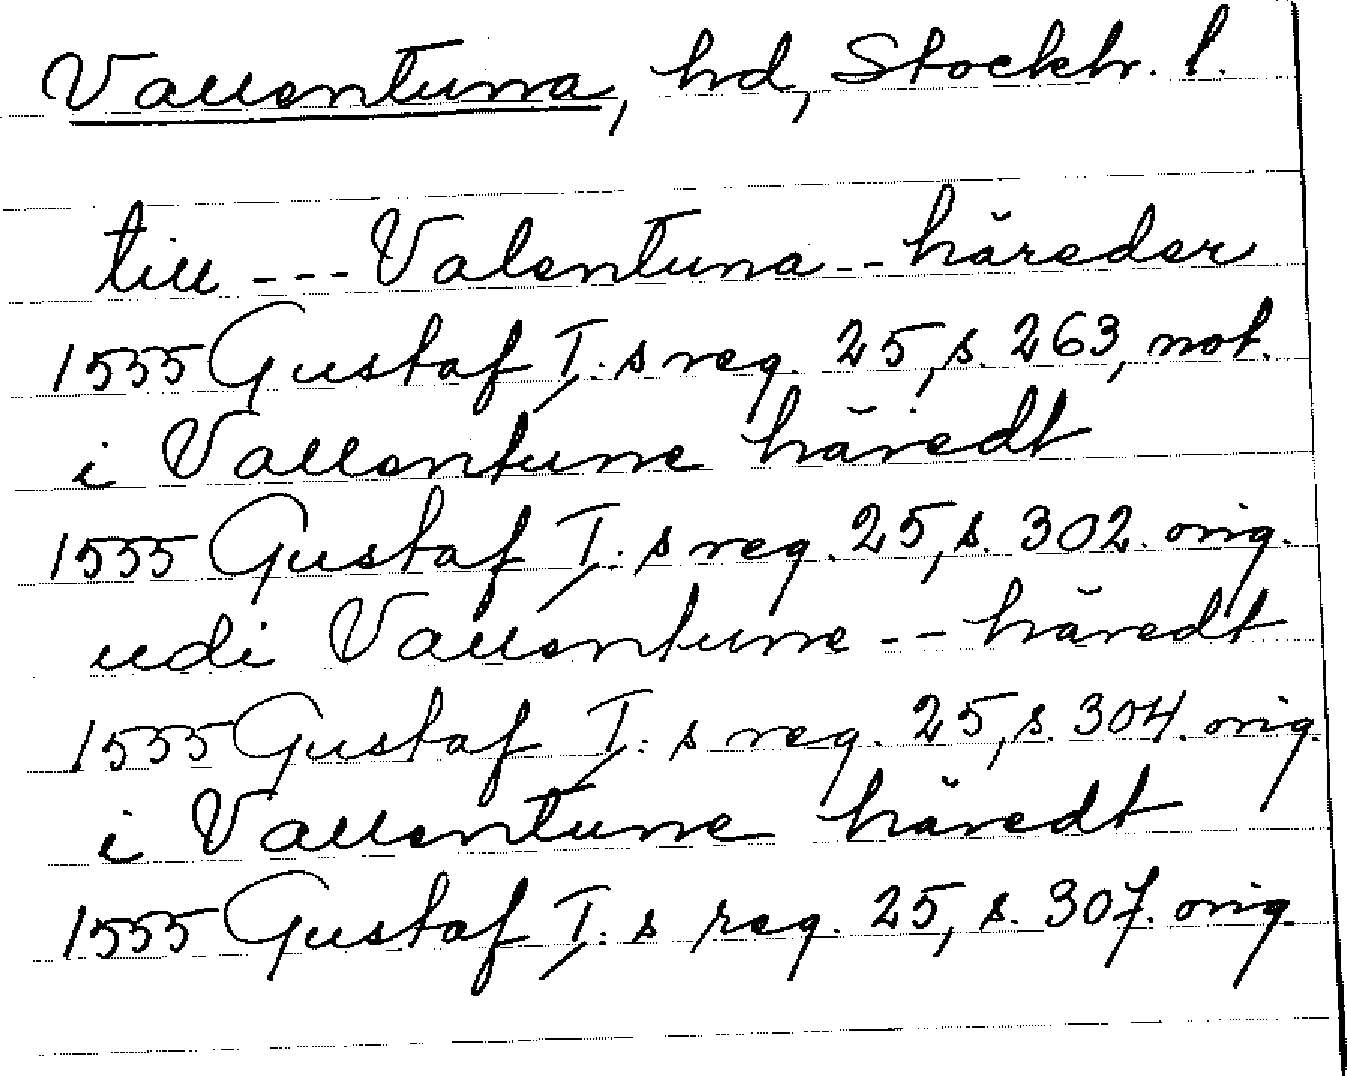 Vallentuna, hd, Stockh. l.
till --- Valentuna -- häreder
1555 Gustaf I:s reg. 25, s. 263, not.
i Vallentune häredt
1555 Gustaf I:s reg. 25, s. 302. orig.
udi Vallentune -- häredt
1555 Gustaf I:s reg. 25, s. 304. orig.
i Vallentune häredt
1555 Gustaf I:s reg. 25, s. 307. orig.